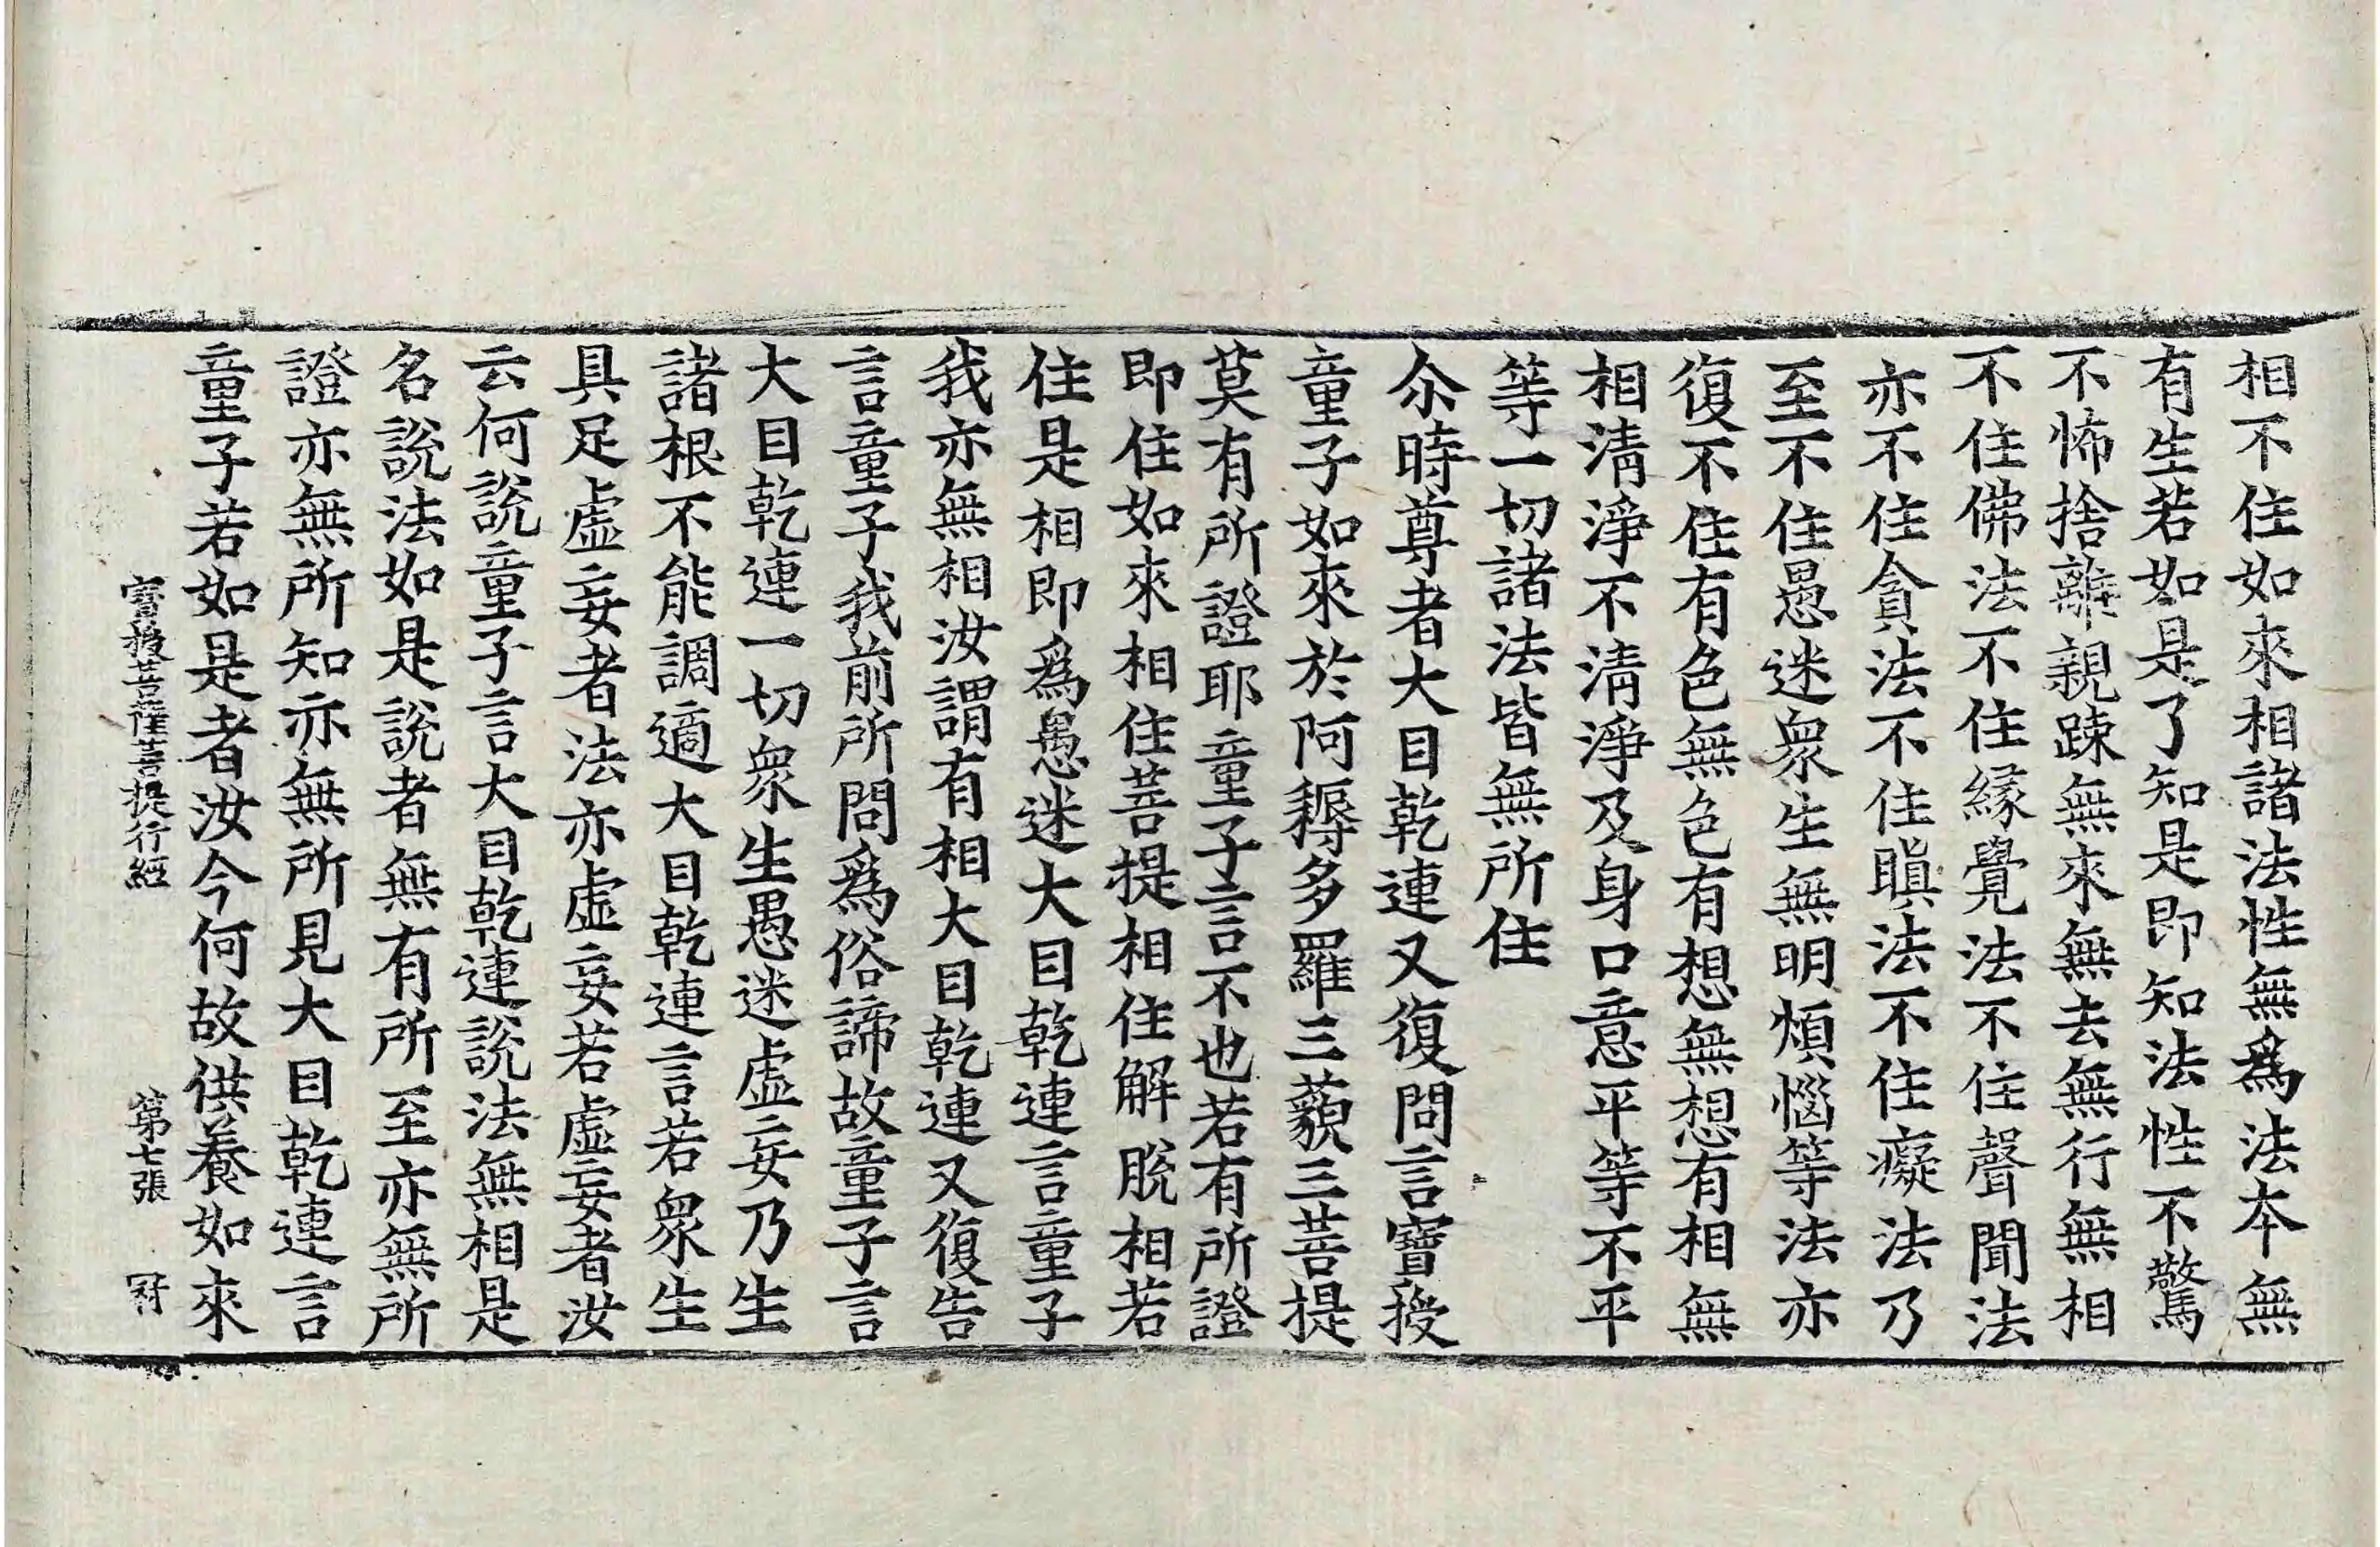 相不住如來相諸法性無爲法本無
有生若如是了知是即知法性不驚
不怖捨離親踈無來無去無行無相
不住佛法不住緣覺法不住聲聞法
亦不住貪法不住瞋法不住癡法乃
至不住愚迷衆生無明煩惱等法亦
復不住有色無色有想無想有相無
相清淨不清淨及身口意平等不平
等一切諸法皆無所住
尒時尊者大目乾連又復問言寶授
童子如來於阿耨多羅三藐三菩提
莫有所證耶童子言不也若有所證
即住如來相住菩提相住解脫相若
住是相即爲愚迷大目乾連言童子
我亦無相汝謂有相大目乾連又復告
言童子我前所問爲俗諦故童子言
大目乾連一切衆生愚迷虛妄乃生
諸根不能調適大目乾連言若衆生
具足虛妄者法亦虛妄若虛妄者汝
云何說童子言大目乾連說法無相是
名說法如是說者無有所至亦無所
證亦無所知亦無所見大目乾連言
童子若如是者汝今何故供養如來
寶授菩薩菩提行經 第七張 冠